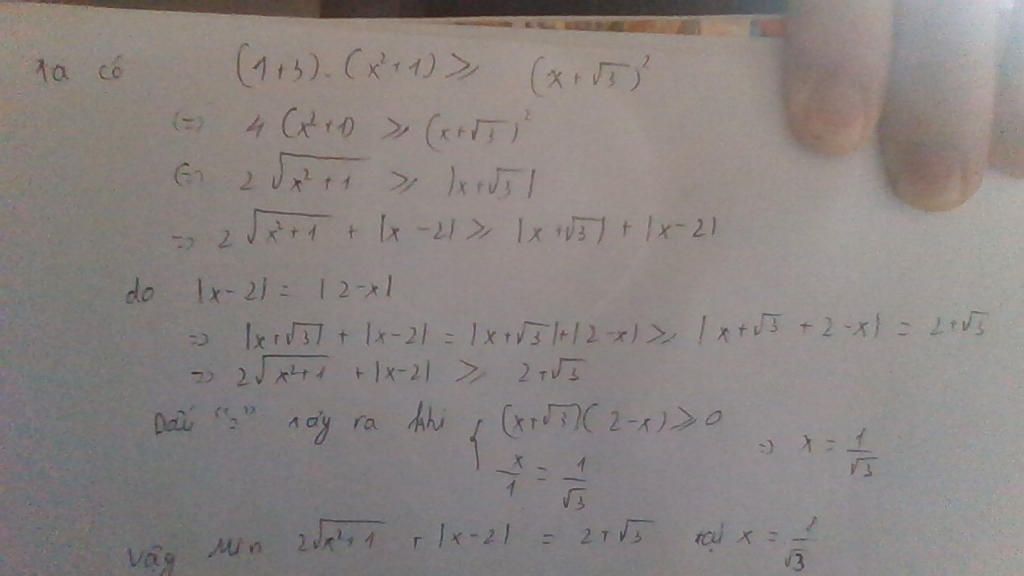 Ta có (1+3).(x²+1) ≥ (x+√3)²
(=) 4(x²+1) ≥ (x+√3)²
(=) 2√(x²+1) ≥ |x+√3|
=> 2√(x²+1) + |x-2| ≥ |x+√3| + |x-2|
do |x-2| = |2-x|
=> |x+√3| + |x-2| = |x+√3|+|2-x| ≥ |x+√3+2-x| = 2+√3
=> 2√(x²+1) + |x-2| ≥ 2+√3
Dấu "=" xảy ra khi { (x+√3)(2-x) ≥ 0
x/1 = 1/√3 => x = 1/√3
Vậy Min 2√(x²+1) + |x-2| = 2+√3 tại x = 1/√3